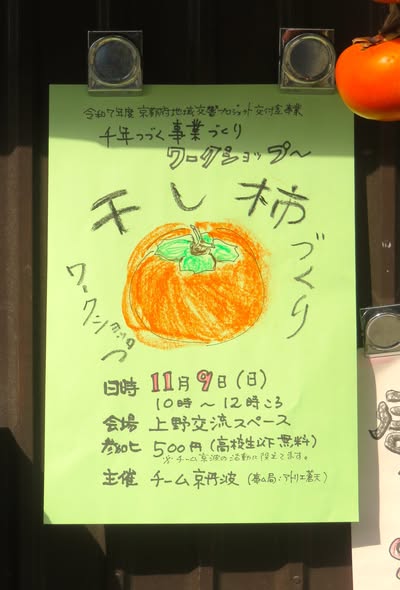 令和7年度 京都府地域交響プロジェクト交付金事業
千年つづく事業づくり
ワークショップ〜
干し柿づくり
ワークショップ
日時 11月9日(日)
10時〜12時ころ
会場 上野交流スペース
参加ヒ 500円(高校生以下無料)
※チーム京丹波の活動に充てます。
主催 チーム京丹波 (事ム局:アトリエ蒼天)